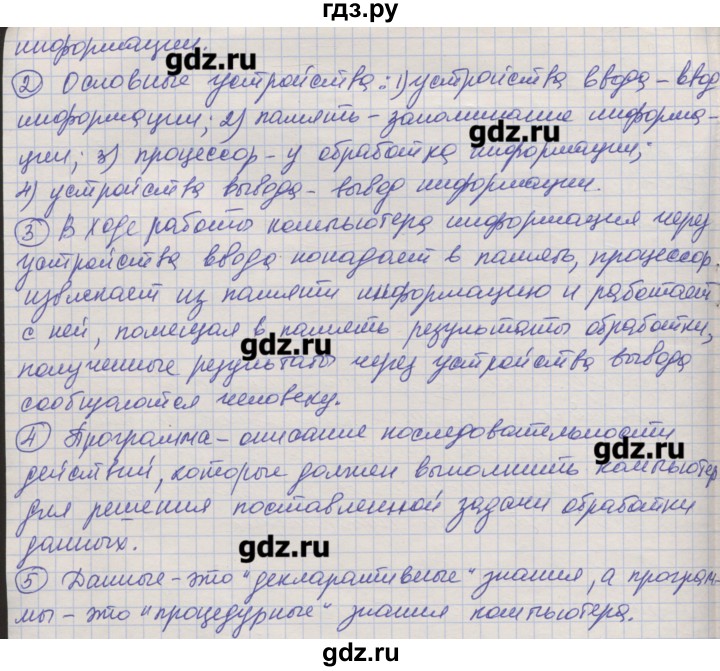 гдз.ру
информации.
② Основные устройства: 1) устройства ввода – ввод
информации; 2) память – запоминание информа-
ции; 3) процессор – у обработка информации;
4) устройства вывода – вывод информации.
③ В ходе работы компьютера информация через
устройства ввода попадает в память, процессор
извлекает из памяти информацию и работает
с ней, помещая в память результаты обработки,
полученные результаты через устройства вывода
сообщаются человеку.
④ Программа – описание последовательности
действий, которые должен выполнить компьютер
для решения поставленной задачи обработки
данных.
⑤ Данные – это "декларативные" знания, а програм-
мы – это "процедурные" знания компьютера.
gdz.ru
gdz.ru
gdz.ru
gdz.ru
gdz.ru
gdz.ru